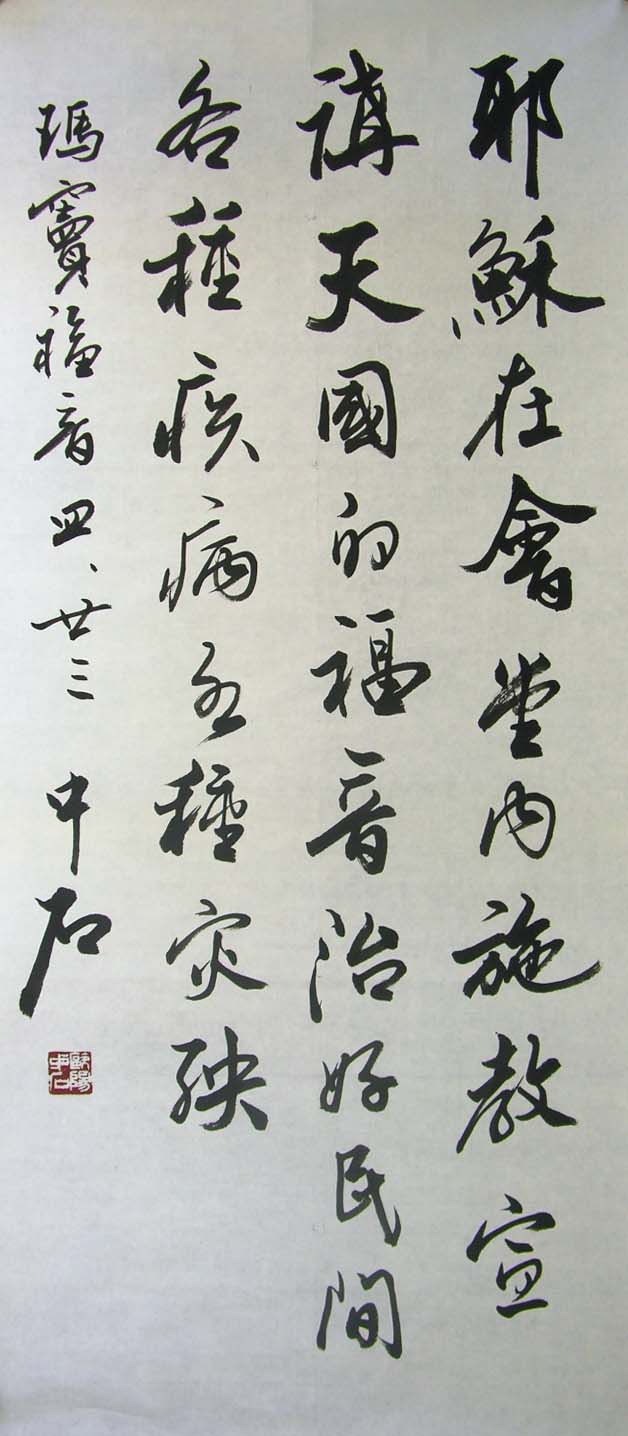 耶穌在會堂內施教宣
講天國的福音治好民間
各種疾病各種災殃
瑪竇福音四、廿三 中石
歐陽中石